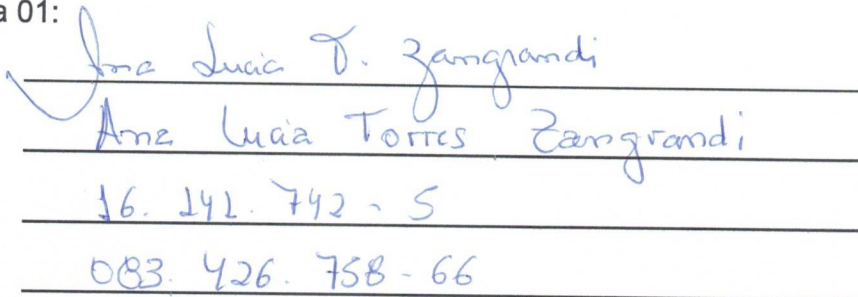 a 01:
Ana Lucia T. Zangrandi
Ana Lucia Torres Zangrandi
16.141.742-5
083.426.758-66